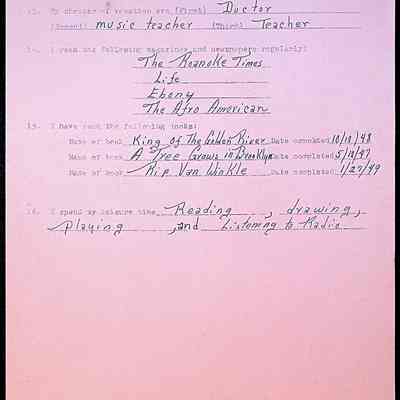 13. My choices of vocation are (First) Doctor
(Second) music teacher (Third) Teacher
14. I read the following magazines and newspapers regularly:
The Roanoke Times
Life
Ebony
The Afro American
15. I have read the following books:
Name of book King of The Golden River Date completed 10/18/48
Name of book A Tree Grows in Brooklyn Date completed 5/11/47
Name of book Rip Van Winkle Date completed 1/27/49
16. I spend my leisure time Reading, drawing,
playing, and Listening to Radio